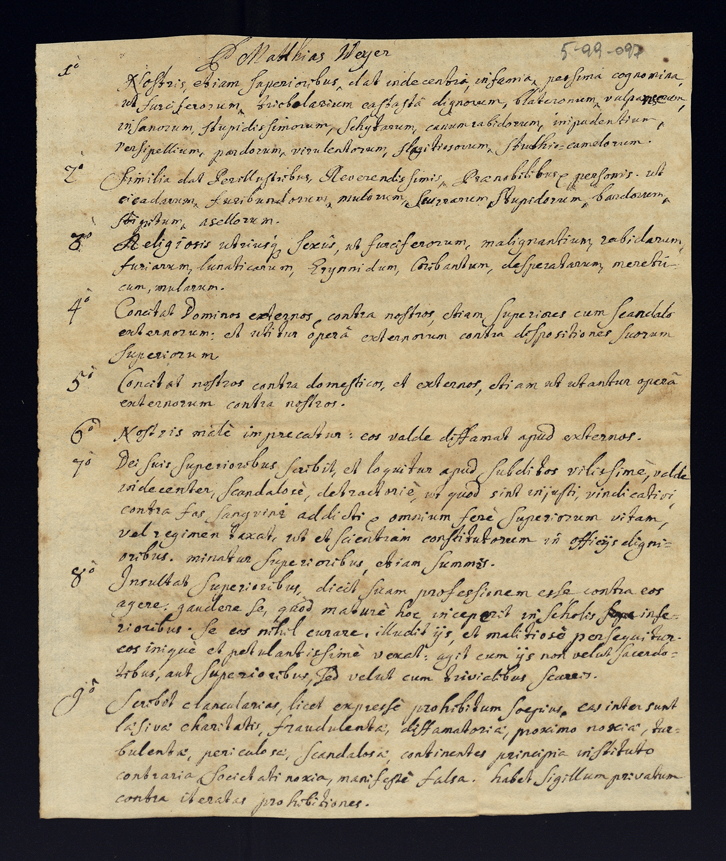 P. Matthias Weyer
5-99-097
1º Nostris, etiam superioribus, dat indecentia, infamia, pessima cognomina,
ut furciferorum, dignorum, blateronum,
insanorum, stupidissimorum, Schytarum, canum rabidorum, impudentium,
versipellium, pardorum, virulentorum, flagitiosorum, struthio-camelorum.
2º Similia dat Perillustribus, Reverendissimis, Prænobilibusq personis. ut
cicadarum, furibundorum, mulorum, scurrarum, stupidorum, bardorum,
stipitum, asellorum.
3º Religiosis utriusq sexus, ut furciferorum, malignantium, rabidarum,
furiarum, lunaticarum, Erynnidum, Coribantum, desperatarum, meretri-
cum, mularum.
4º Concitat Dominos externos, contra nostros, etiam superiores cum scandalo
externorum: et utitur operâ externorum contra dispositiones suorum
superiorum
5º Concitat nostros contra domesticos, et externos, etiam ut utantur operâ
externorum contra nostros.
6º Nostris malè imprecatur: eos valde diffamat apud externos.
7º De suis superioribus scribit, et loquitur apud subditos vilissimè, valde
indecenter, scandalosè, detractoriè, ut quod sint injusti, vindicativi,
contra fas sanguini addicti omnium ferè superiorum vitam,
vel regimen taxat, ut et scientiam constitutorum in officijs digni-
oribus. minatur superioribus, etiam summis.
8º Insultat superioribus, dicit suam professionem esse contra eos
agere: gaudere se, quòd maturè hoc inceperit in scholis infe-
rioribus. se eos nihil curare, illudit ijs, et malitiosè persequitur.
eos iniquè et petulantissimè vexat: agit cum ijs non velut sacerdo-
tibus, aut superioribus, sed velut cum trivialibus scurris.
9º Scribit clancularias, licet expressè prohibitum sæpius, eas inter sunt
læsivæ charitatis, fraudulentæ, diffamatoriæ, proximo noxiæ, tur-
bulentæ, periculosæ, scandalosæ, continentes principia instituto
contraria, Societati noxia, manifestè falsa. habet sigillum privatum
contra iteratas prohibitiones.